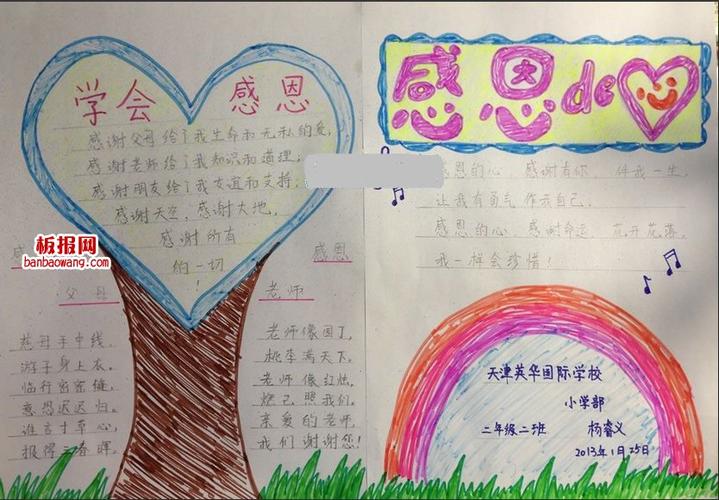 学会 感恩
感谢父母给了我生命和无私的爱，
感谢老师给了我知识和道理；
感谢朋友给了我友谊和支持；
感谢天空，感谢大地，
感谢所有
的一切
！
板报网
banbaowang.com
感
父母
慈母手中线，
游子身上衣。
临行密密缝，
意恐迟迟归。
谁言寸草心，
报得三春晖。
感恩
老师
老师像园丁，
桃李满天下。
老师像红烛，
燃己照我们。
亲爱的老师，
我们谢谢您！
感恩de
感恩的心，感谢有你，伴我一生，
让我有勇气作我自己；
感恩的心，感谢命运，花开花落，
我一样会珍惜！
天津英华国际学校
小学部
二年级二班 杨睿义
2013年1月25日